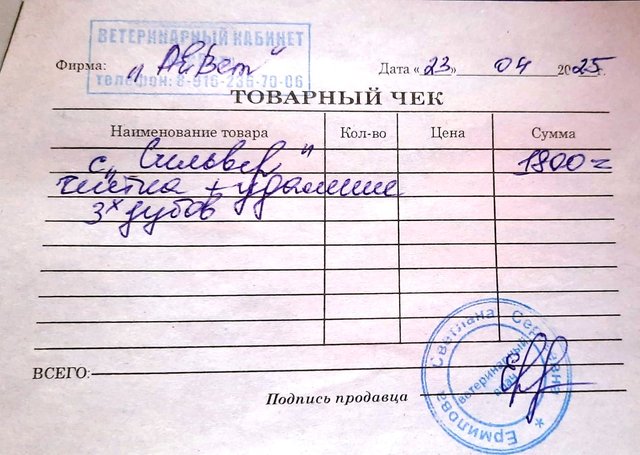 ВЕТЕРИНАРНЫЙ КАБИНЕТ
Фирма: "Айвет" Дата «23» 04 2025 г.
телефон: 8-918-236-70-06
ТОВАРНЫЙ ЧЕК
Наименование товара Кол-во Цена Сумма
с "Сильвер" 1800=
чистка + удаление
3х зубов
ВСЕГО:
Подпись продавца
Ермилова Светлана Сергеевна
ветеринарный
врач